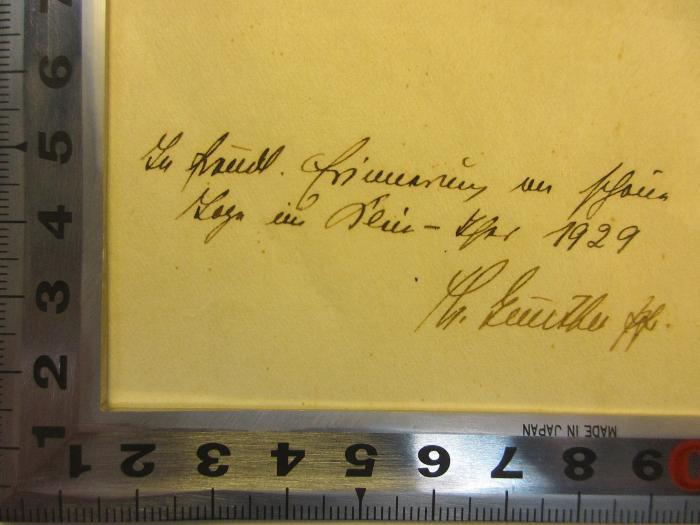 Zu freudl. Erinnerung an schöne
Tage in Klein-Thor 1929
Th. Günther
MADE IN JAPAN
7
6
5
4
3
2
1
1 2 3 4 5 6 7 8 9 10